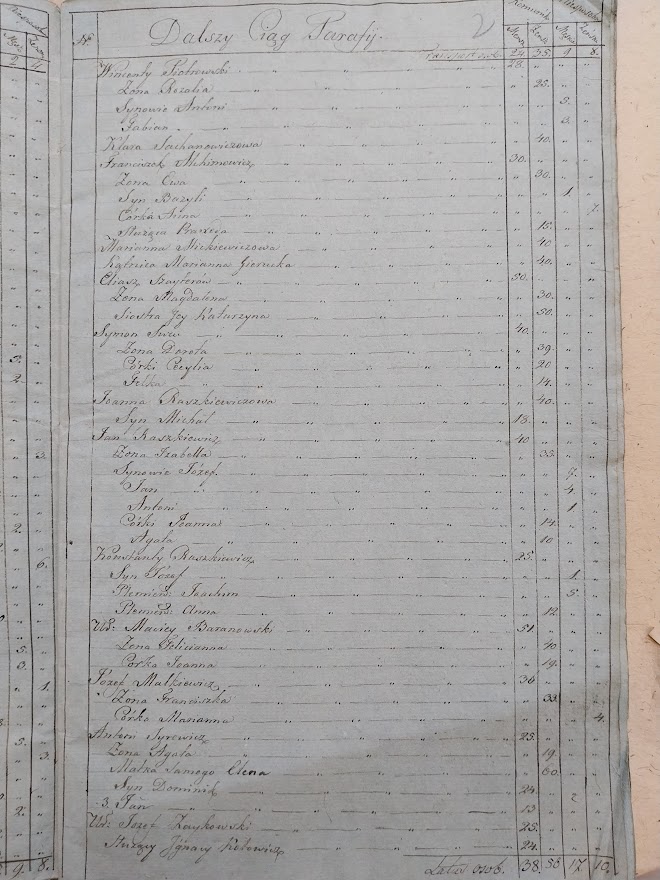 Męz. Żon.
N. Dalszy Ciąg Parafij. 2
24. 35. 9. 8.
Wincenty Piotrowski 28.
Zona Rozalia 25.
Synowie Antoni 5.
Fabian 3.
Klara Sachanowiczowa 40.
Franciszek Alekimowicz 30.
Zona Ewa 30.
Syn Bazyli 1.
Córka Anna 7.
Służąca Praxeja 15.
Marianna Mickiewiczowa 40
Kątnica Marianna 40.
Eliasz 50.
Zona Magdalena 30.
Siostra Jey Katarzyna 50.
Symon 40.
Zona Dorota 39.
Córki Cecylia 20
Felka 14.
Joanna Raszkiewiczowa 40.
Syn Michał 18.
Jan Raszkiewicz 40
Zona Izabella 33.
Synowie Józef 7.
Jan 4.
Antoni 1.
Córki Joanna 14.
Agata 10
Konstanty Raszkiewicz 25.
Syn Józef 1.
Plemien: Joachim 5.
Plemien: Anna 12.
Ud: Maciey Baranowski 51.
Zona Felicianna 40
Córka Joanna 19.
Józef Małkiewicz 36
Zona Franciszka 33.
Córka Marianna 4.
Antoni Syrewicz 25.
Zona Agata 19.
Matka Samego Elena 60.
Syn Dominik 24
3. Jan 13
Ud: Józef Zaykowski 25.
Służący Ignacy Kotowicz 24.
Latus osob. 38. 56 17. 10.
9. 8.